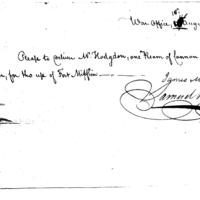 War Office, Augu
Please to deliver Mr Hodgdon, one Ream of Common
for the use of Fort Mifflin
James M
Samuel